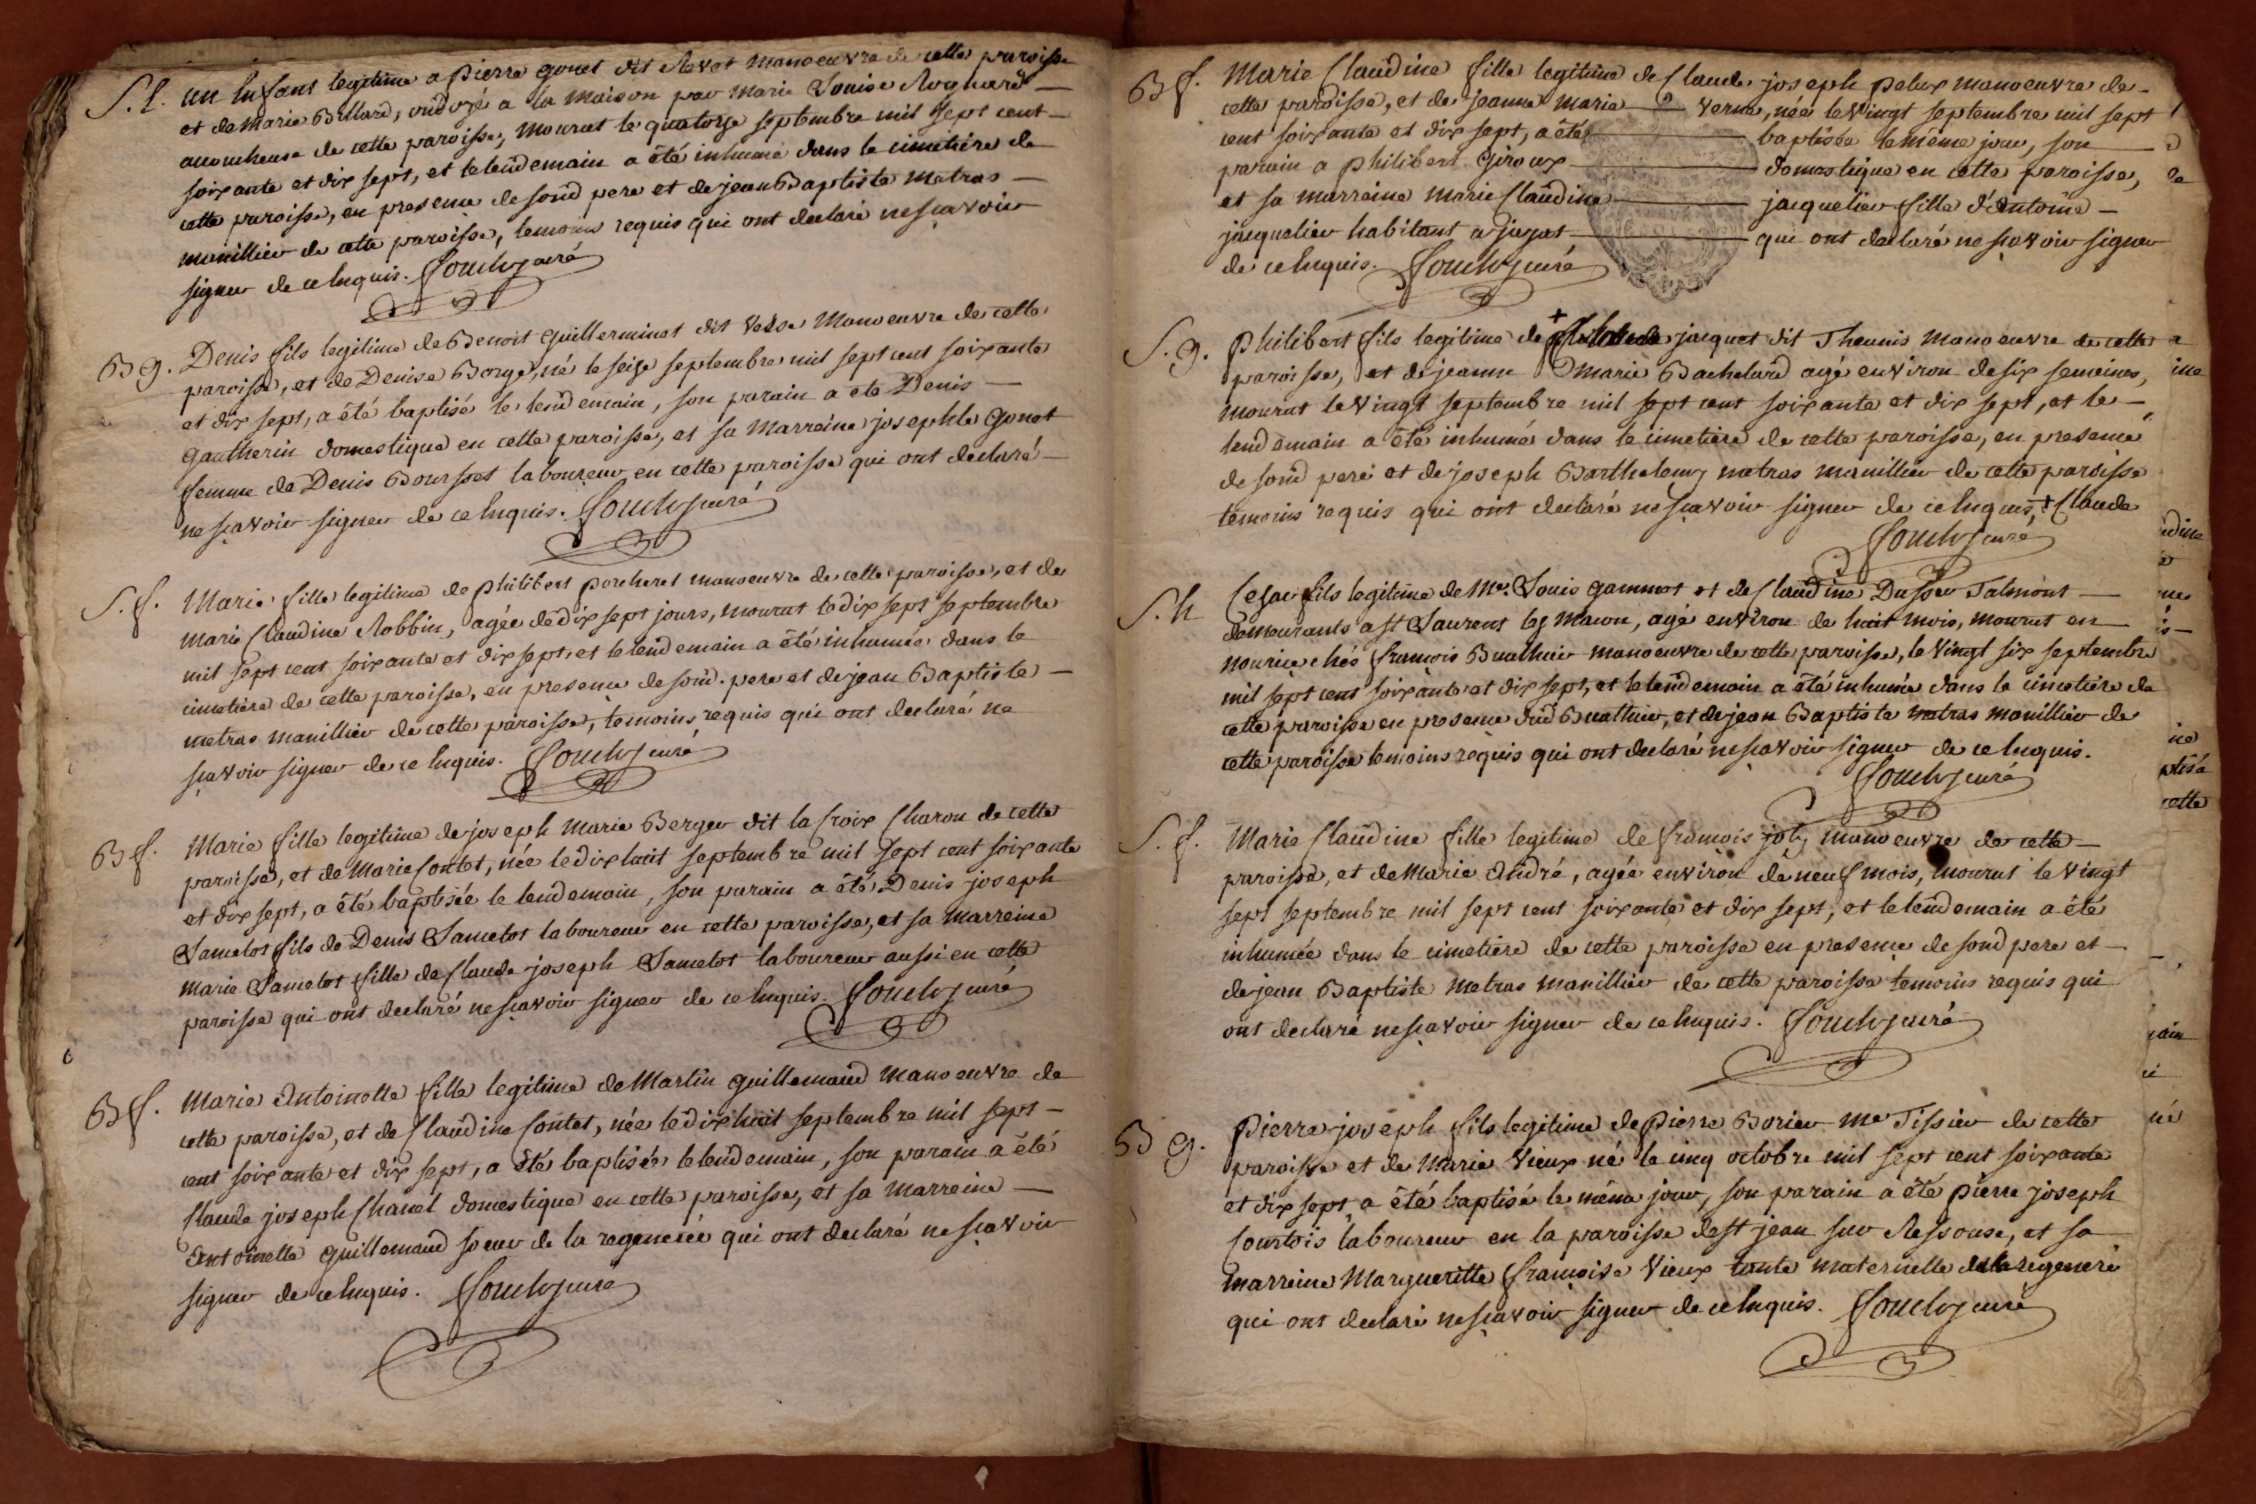 S. f. un Enfant legitime a pierre gonet dit Revet manoeuvre de cette paroisse
et de marie Billard, ondoyé a la maison par marie Louise Rognard
accoucheuse de cette paroisse, mourut le quatorze septembre mil sept cent
soixante et dix sept, et le lendemain a été inhumé dans le cimetiere de
cette paroisse, en presence de sond pere et de jean Baptiste matras
manillier de cette paroisse, temoins requis qui ont declaré ne scavoir
signer de ce Enquis. curé
B g. Denis fils legitime de Benoit guillerminet dit manoeuvre de cette
paroisse, et de Denise Borge, né le seize septembre mil sept cent soixante
et dix sept, a été baptisé le lendemain, son parain a été Denis
gautherin domestique en cette paroisse, et sa marreine josephte gonet
femme de Denis Boursset laboureur en cette paroisse qui ont declaré
ne scavoir signer de ce Enquis. curé
S. f. Marie fille legitime de philibert porcheret manoeuvre de cette paroisse, et de
marie Claudine Robbin, agée de dix sept jours, mourut le dix sept septembre
mil sept cent soixante et dix sept, et le lendemain a été inhumée dans le
cimetiere de cette paroisse, en presence de sond. pere et de jean Baptiste
metras manillier de cette paroisse, temoins requis qui ont declaré ne
scavoir signer de ce Enquis. curé
B f. Marie fille legitime de joseph Marie Berger dit la Croix Charon de cette
paroisse, et de Marie Contet, née le dix huit septembre mil sept cent soixante
et dix sept, a été baptisée le lendemain, son parain a été Denis joseph
Lamelot fils de Denis Lamelot laboureur en cette paroisse, et sa marreine
marie Lamelot fille de Claude joseph Lamelot laboureur aussi en cette
paroisse qui ont declaré ne scavoir signer de ce Enquis. curé
B f. Marie Antoinette fille legitime de Martin guillemaud manoeuvre de
cette paroisse, et de Claudine Contet, née le dix huit septembre mil sept
cent soixante et dix sept, a été baptisée le lendemain, son parain a été
Claude joseph Chanel domestique en cette paroisse, et sa Marreine
Antoinette guillemaud soeur de la regenerée qui ont declaré ne scavoir
signer de ce Enquis. curé
B f. Marie Claudine fille legitime de Claude joseph pelux manoeuvre de
cette paroisse, et de jeanne marie verne, née le vingt septembre mil sept
cent soixante et dix sept, a été baptisée le même jour, son
parain a philibert giroux domestique en cette paroisse,
et sa marreine marie Claudine jacquelier fille d'Antoine
jacquelier habitant a jayat qui ont declaré ne scavoir signer
de ce Enquis. curé
S. g. philibert fils legitime de + jacquet dit Thevenis manoeuvre de cette
paroisse, et de jeanne Marie Bachelard agé environ de six semeines,
mourut le vingt septembre mil sept cent soixante et dix sept, et le
lendemain a été inhumé dans le cimetiere de cette paroisse, en presence
de sond pere et de joseph Barthelemy metras manillier de cette paroisse
temoins requis qui ont declaré ne scavoir signer de ce Enquis, + Claude
curé
S. h Cesar fils legitime de Me. Louis gammet et de Claudine Dusser Talmont
demeurants a st Laurent les macon, agé environ de huit mois, mourut en
nourice chés françois Buathier manoeuvre de cette paroisse, le vingt six septembre
mil sept cent soixante et dix sept, et le lendemain a été inhumé dans le cimetiere de
cette paroisse en presence dud Buathier, et de jean Baptiste metras manillier de
cette paroisse temoins requis qui ont declaré ne scavoir signer de ce Enquis.
curé
S. f. Marie Claudine fille legitime de françois joly manoeuvre de cette
paroisse, et de Marie André, agée environ de neuf mois, mourut le vingt
sept septembre mil sept cent soixante et dix sept, et le lendemain a été
inhumée dans le cimetiere de cette paroisse en presence de sond pere et
de jean Baptiste metras manillier de cette paroisse temoins requis qui
ont declaré ne scavoir signer de ce Enquis. curé
B g. Pierre joseph fils legitime de pierre Borier me Tissier de cette
paroisse et de Marie Vieux né le cinq octobre mil sept cent soixante
et dix sept, a été baptisé le même jour, son parain a été pierre joseph
Courtois laboureur en la paroisse de st jean sur Ressouse, et sa
marreine Marguerite françoise Vieux tante maternelle du regeneré
qui ont declaré ne scavoir signer de ce Enquis. curé